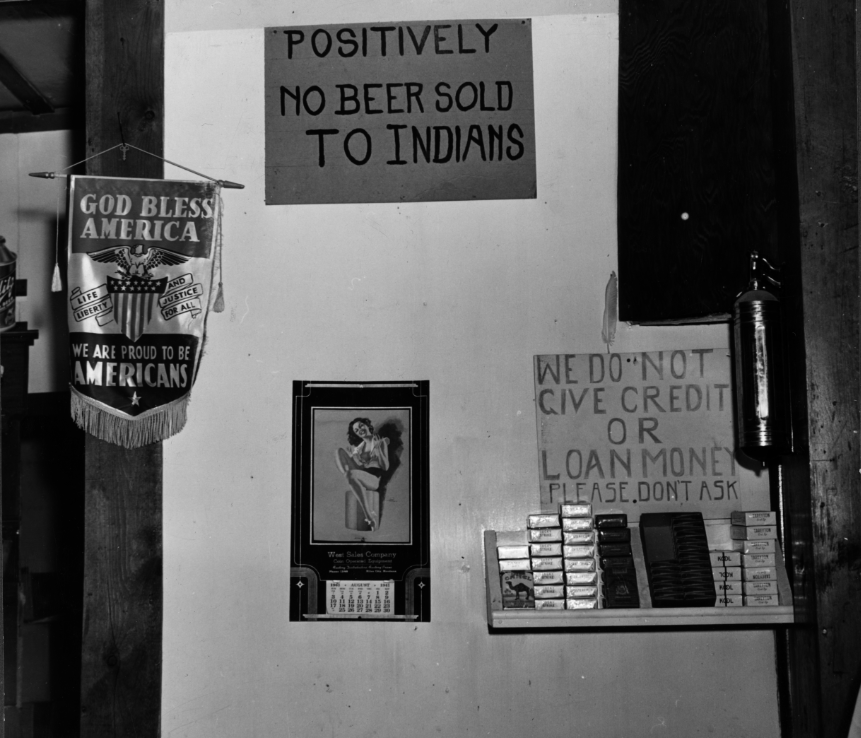 POSITIVELY
NO BEER SOLD
TO INDIANS
GOD BLESS
AMERICA
LIFE
LIBERTY
AND
JUSTICE
FOR ALL
WE ARE PROUD TO BE
AMERICANS
WE DO "NOT
GIVE CREDIT
OR
LOAN MONEY
PLEASE. DON'T ASK
West Sales Company
Coin Operated Equipment
1941 AUGUST 1941
CAMEL
KOOL
KOOL
KOOL